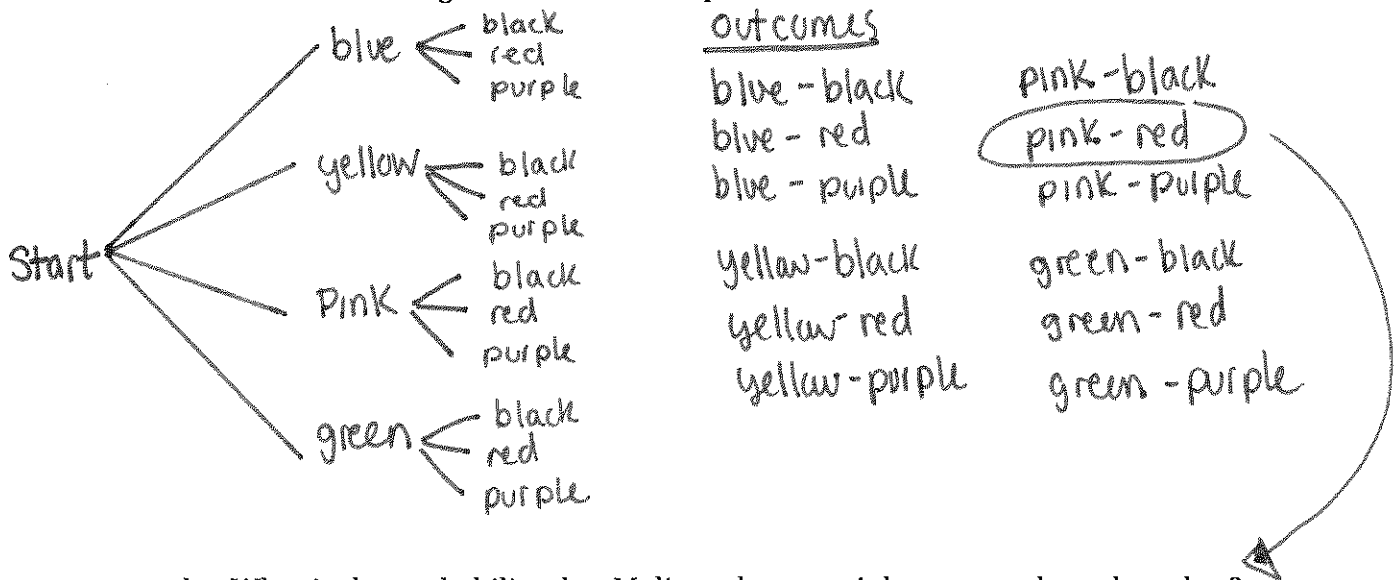 Start
blue
black
red
purple
yellow
black
red
purple
pink
black
red
purple
green
black
red
purple
outcomes
blue - black
blue - red
blue - purple
yellow - black
yellow - red
yellow - purple
pink - black
pink - red
pink - purple
green - black
green - red
green - purple